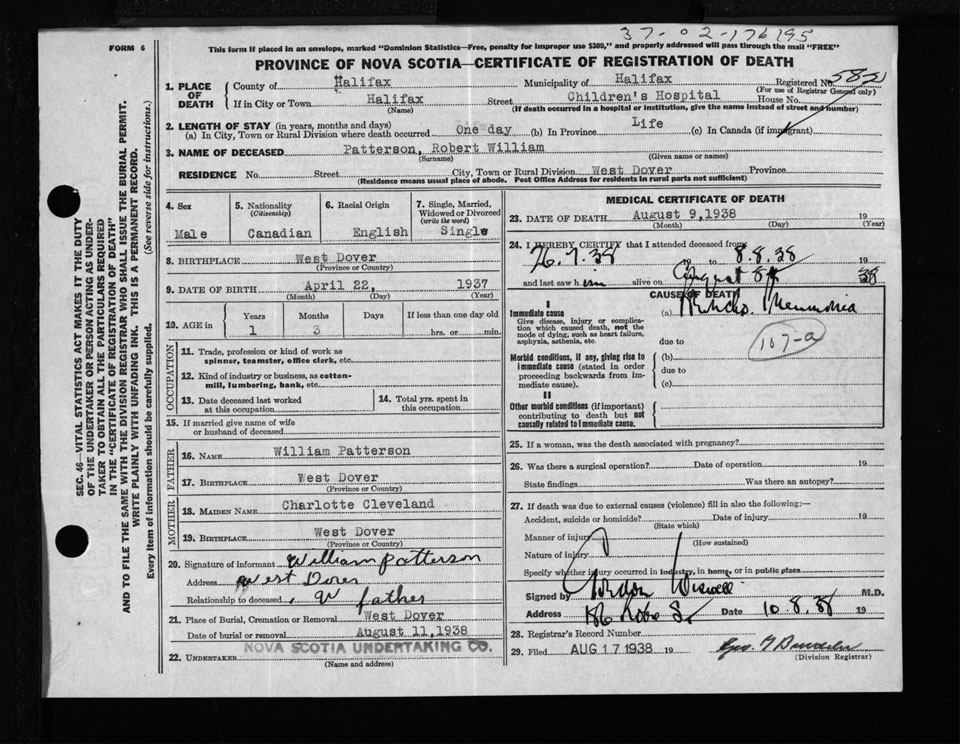 37-02-176195
FORM 6
This form if placed in an envelope, marked "Dominion Statistics—Free, penalty for improper use $300," and properly addressed will pass through the mail "FREE"
PROVINCE OF NOVA SCOTIA—CERTIFICATE OF REGISTRATION OF DEATH
1. PLACE OF DEATH
County of Halifax Municipality of Halifax Registered No. 582
(For use of Registrar General only)
If in City or Town Halifax Street Children's Hospital House No.
(Name) (If death occurred in a hospital or institution, give the name instead of street and number)
2. LENGTH OF STAY (in years, months and days)
(a) In City, Town or Rural Division where death occurred One day (b) In Province Life (c) In Canada (if immigrant)
3. NAME OF DECEASED Patterson, Robert William
(Surname) (Given name or names)
RESIDENCE No. Street City, Town or Rural Division West Dover Province
(Residence means usual place of abode. Post Office Address for residents in rural parts not sufficient)
4. Sex
Male
5. Nationality
(Citizenship)
Canadian
6. Racial Origin
English
7. Single, Married, Widowed or Divorced
(write the word)
Single
8. BIRTHPLACE West Dover
(Province or Country)
9. DATE OF BIRTH April 22, 1937
(Month) (Day) (Year)
10. AGE in Years Months Days If less than one day old
1 3 hrs. or min.
OCCUPATION
11. Trade, profession or kind of work as spinner, teamster, office clerk, etc.
12. Kind of industry or business, as cotton-mill, lumbering, bank, etc.
13. Date deceased last worked at this occupation
14. Total yrs. spent in this occupation
15. If married give name of wife or husband of deceased
FATHER
16. NAME William Patterson
17. BIRTHPLACE West Dover
(Province or Country)
MOTHER
18. MAIDEN NAME Charlotte Cleveland
19. BIRTHPLACE West Dover
(Province or Country)
20. Signature of informant William Patterson
Address West Dover
Relationship to deceased father
21. Place of Burial, Cremation or Removal West Dover
Date of burial or removal August 11, 1938
22. UNDERTAKER NOVA SCOTIA UNDERTAKING CO.
(Name and address)
MEDICAL CERTIFICATE OF DEATH
23. DATE OF DEATH August 9, 1938 19
(Month) (Day) (Year)
24. I HEREBY CERTIFY that I attended deceased from
26.7.38 19 to 8.8.38
and last saw him alive on August 8th 38
CAUSE OF DEATH
I
Immediate cause
Give disease, injury or complication which caused death, not the mode of dying, such as heart failure, asphyxia, asthenia, etc.
(a) Broncho Pneumonia
107-a
due to
Morbid conditions, if any, giving rise to immediate cause (stated in order proceeding backwards from immediate cause).
(b)
due to
(c)
II
Other morbid conditions (if important) contributing to death but not causally related to immediate cause.
25. If a woman, was the death associated with pregnancy?
26. Was there a surgical operation? Date of operation 19
State findings Was there an autopsy?
27. If death was due to external causes (violence) fill in also the following:—
Accident, suicide or homicide? Date of injury 19
(State which)
Manner of injury
(How sustained)
Nature of injury
Specify whether injury occurred in industry, in home, or in public place
Signed by Gordon Wiswell M.D.
Address Robie St Date 10.8.38 19
28. Registrar's Record Number
29. Filed AUG 17 1938 19
(Division Registrar)
SEC. 46—VITAL STATISTICS ACT MAKES IT THE DUTY
OF THE UNDERTAKER OR PERSON ACTING AS UNDER-
TAKER TO OBTAIN ALL THE PARTICULARS REQUIRED
IN THE "CERTIFICATE OF REGISTRATION OF DEATH"
AND TO FILE THE SAME WITH THE DIVISION REGISTRAR WHO SHALL ISSUE THE BURIAL PERMIT.
WRITE PLAINLY WITH UNFADING INK. THIS IS A PERMANENT RECORD.
Every item of information should be carefully supplied. (See reverse side for instructions.)